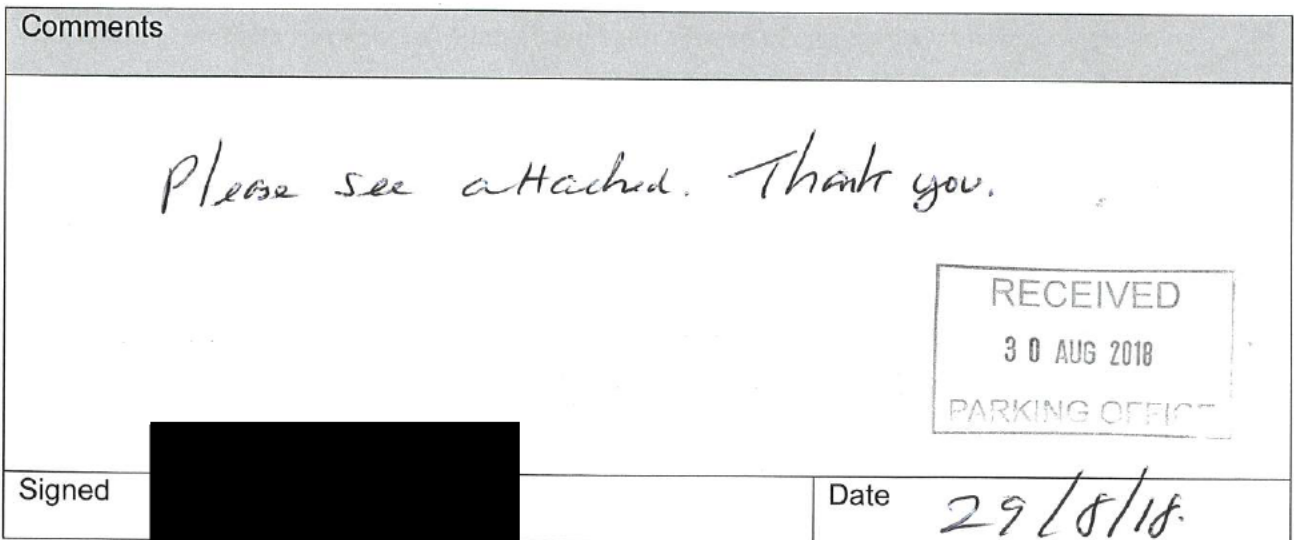 Comments
Please see attached. Thank you.
RECEIVED
30 AUG 2018
PARKING OFFICE
Signed
Date 29/8/18.